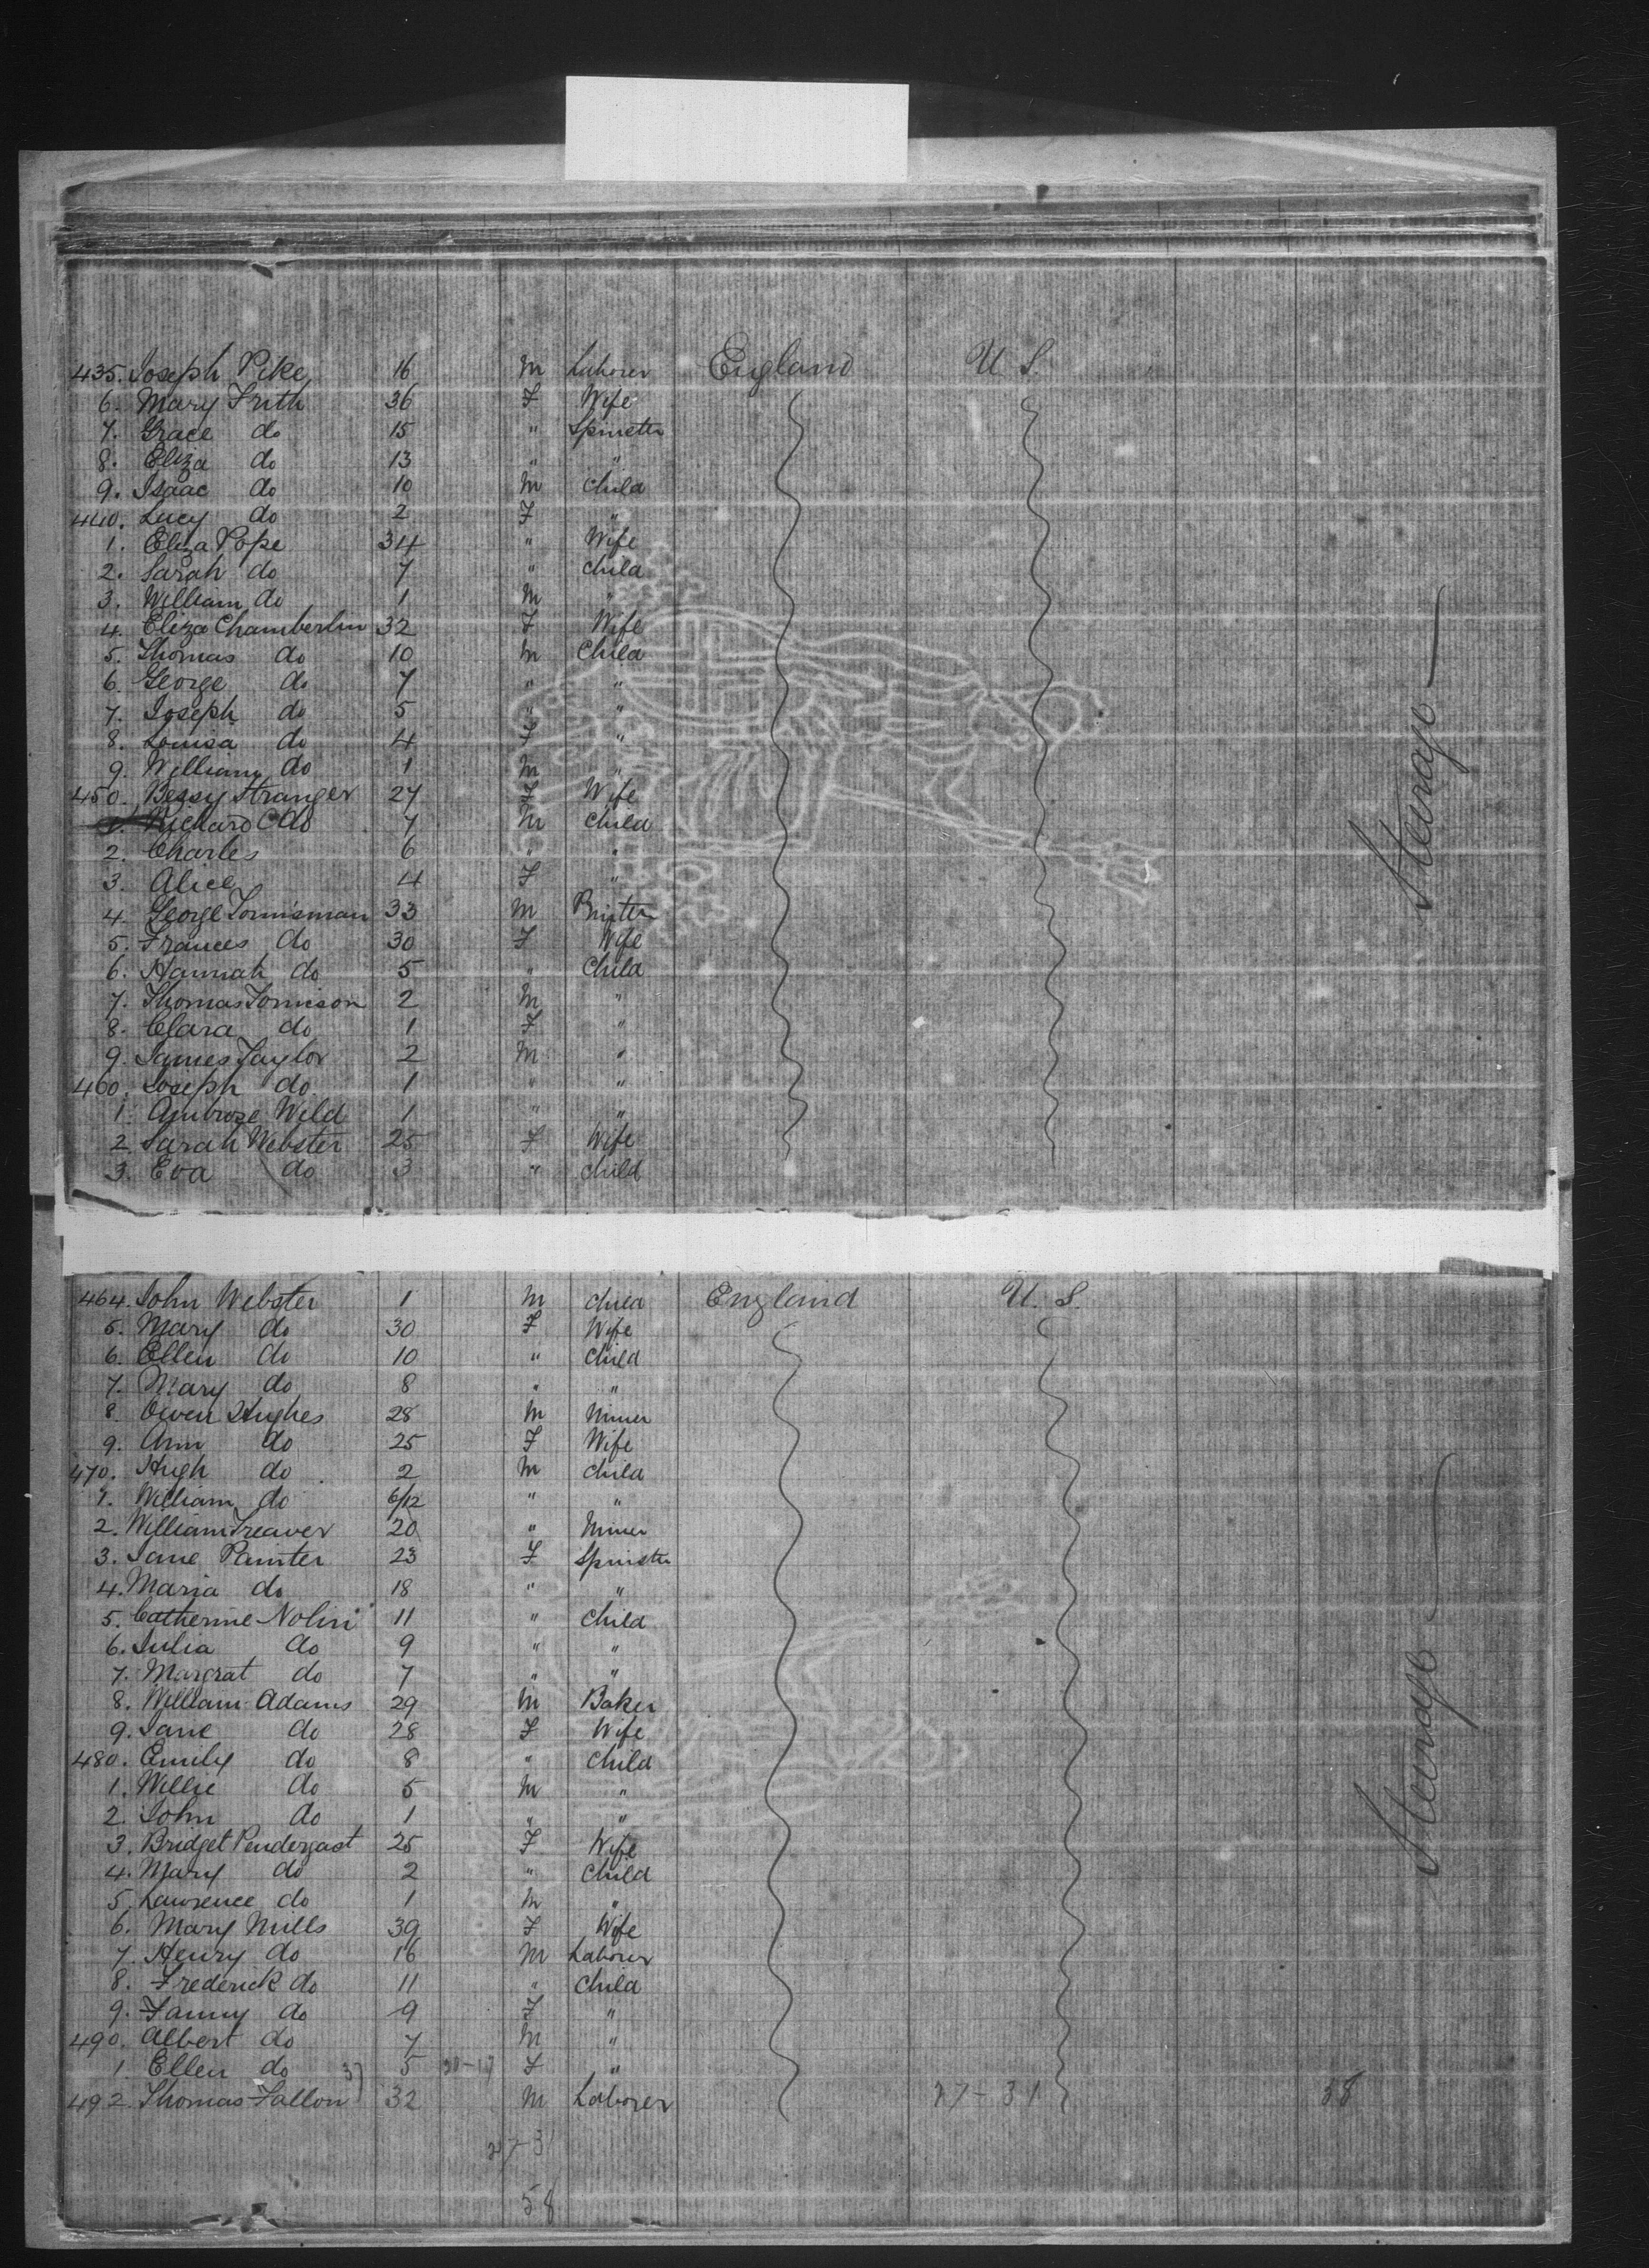 435. Joseph Pike 16 M Laborer England U. S.
6. Mary Frith 36 F Wife
7. Grace do 15 " Spinster
8. Eliza do 13 " "
9. Isaac do 10 M Child
440. Lucy do 2 F "
1. Eliza Pope 34 " Wife
2. Sarah do 7 " Child
3. William do 1 M "
4. Eliza Chamberlin 32 F Wife
5. Thomas do 10 M Child
6. George do 7 " "
7. Joseph do 5 " "
8. Louisa do 4 F "
9. William do 1 M "
450. Bessy Stranger 27 F Wife
1. Richard C do 7 M Child
2. Charles 6 " "
3. Alice 4 F "
4. George Tomisman 33 M Printer
5. Frances do 30 F Wife
6. Hannah do 5 " Child
7. Thomas Tomison 2 M "
8. Clara do 1 F "
9. James Taylor 2 M "
460. Joseph do 1 " "
1. Ambrose Wild 1 " "
2. Sarah Webster 25 F Wife
3. Eva do 3 " Child
Steerage
464. John Webster 1 M Child England U. S.
5. Mary do 30 F Wife
6. Ellen do 10 " Child
7. Mary do 8 " "
8. Owen Hughes 28 M Miner
9. Ann do 25 F Wife
470. Hugh do 2 M Child
1. William do 6/12 " "
2. William Treaver 20 " Miner
3. Jane Painter 23 F Spinster
4. Maria do 18 " "
5. Catherine Nolin 11 " Child
6. Julia do 9 " "
7. Margrat do 7 " "
8. William Adams 29 M Baker
9. Jane do 28 F Wife
480. Emily do 8 " Child
1. Willie do 5 M "
2. John do 1 " "
3. Bridget Pendergast 25 F Wife
4. Mary do 2 " Child
5. Lawrence do 1 M "
6. Mary Mills 39 F Wife
7. Henry do 16 M Laborer
8. Frederick do 11 " Child
9. Fanny do 9 F "
490. Albert do 7 M "
1. Ellen do 5 F "
492. Thomas Fallon 32 M Laborer 27-31 58
Steerage
27-31
58